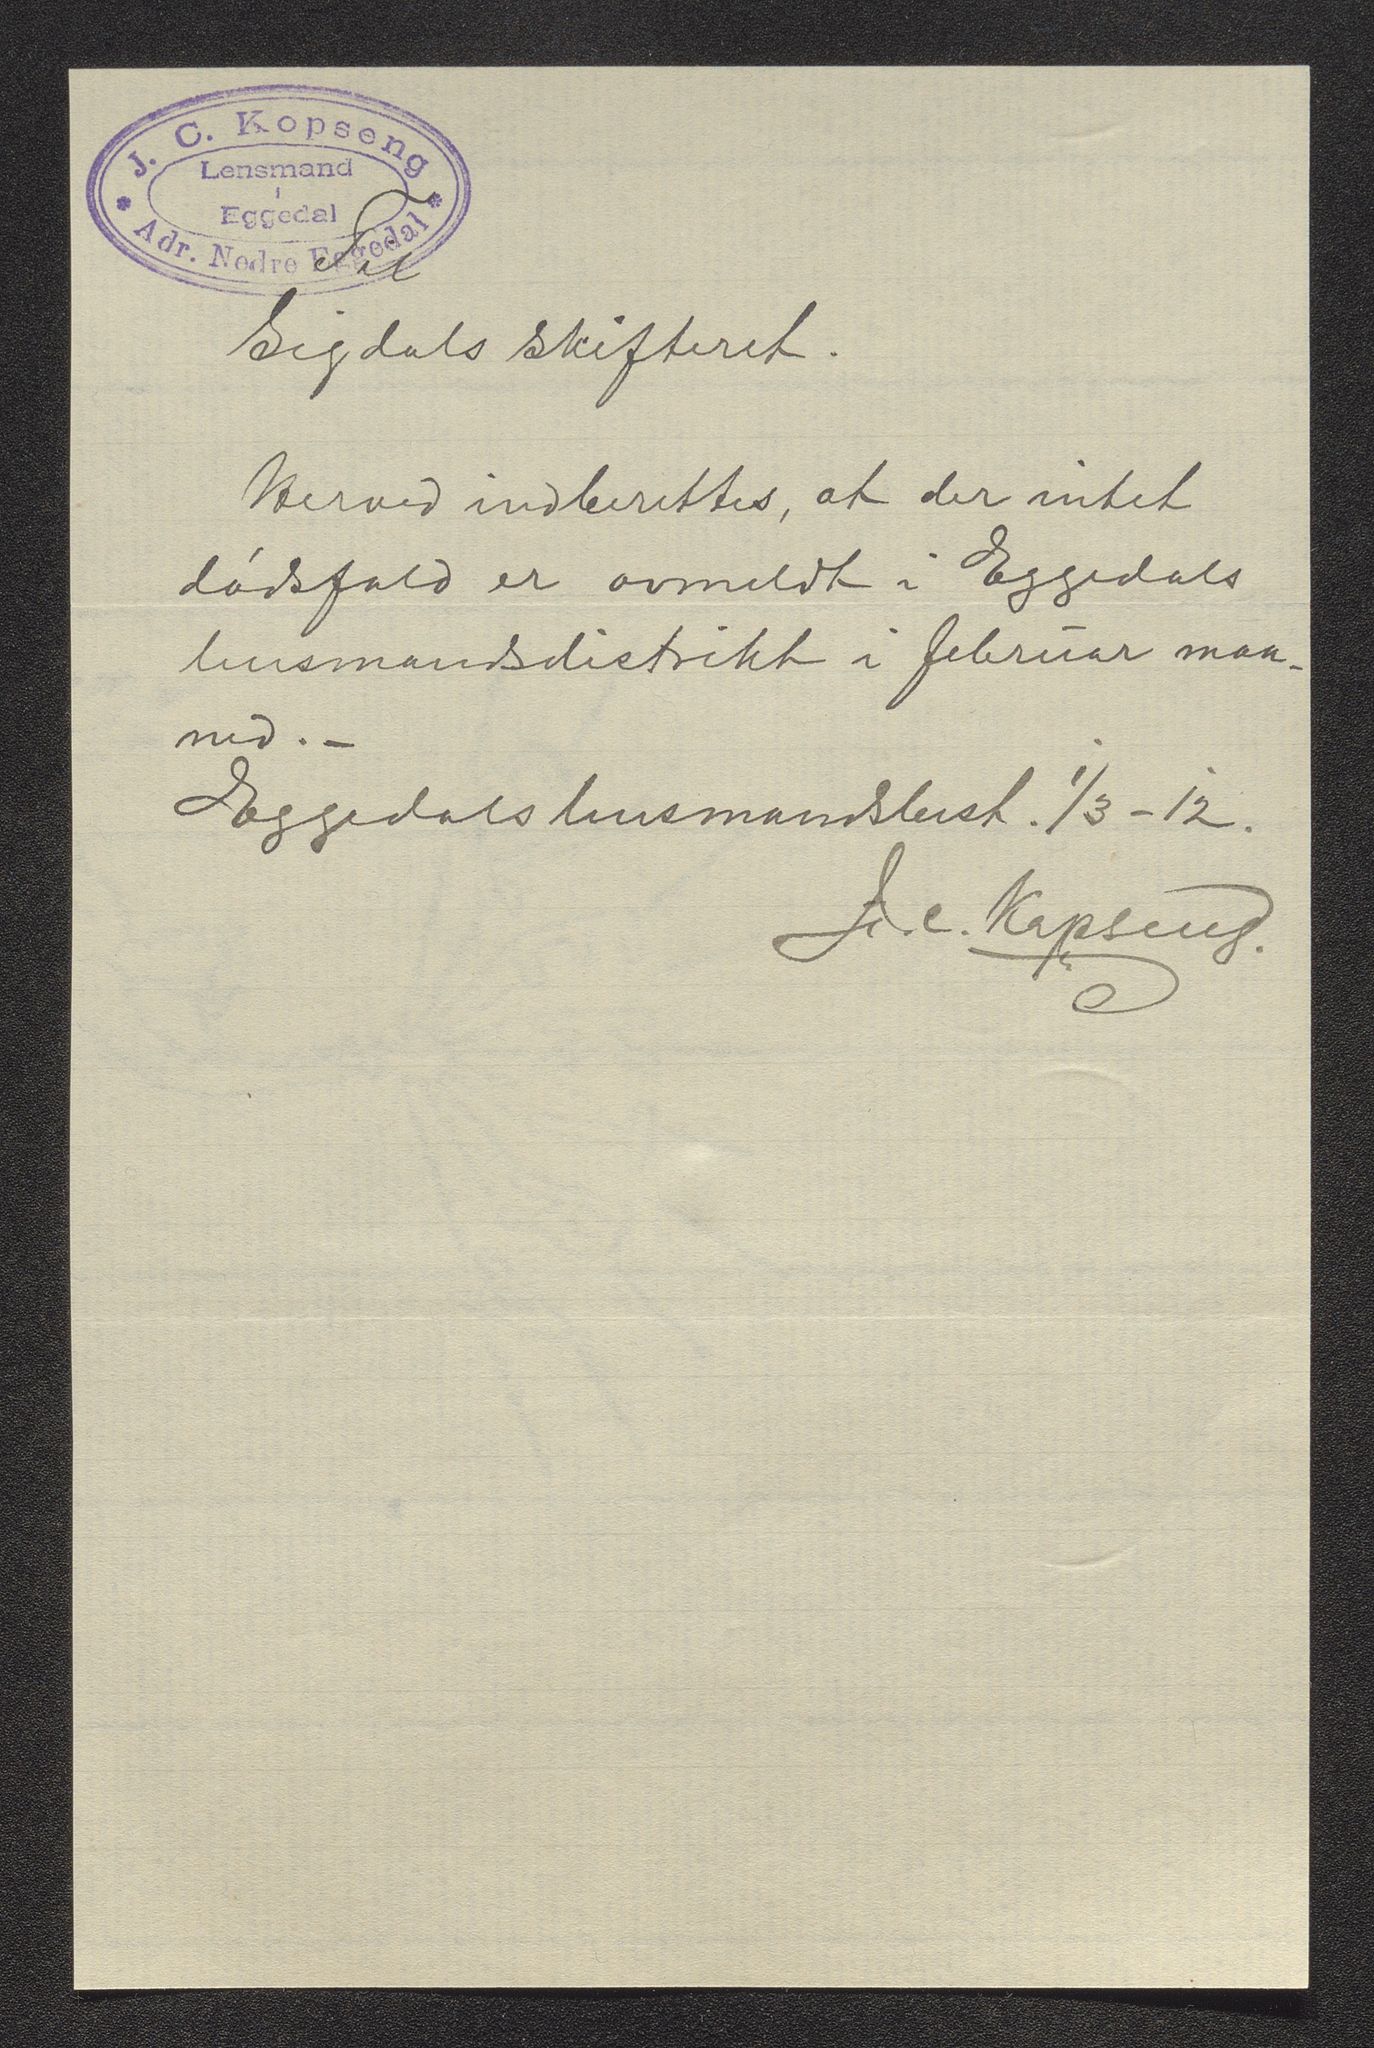 J. C. Kopseng
Lensmand
i
Eggedal
* Adr. Nedre Eggedal *
Til
Sigdals Skifteret.
Herved indberettes, at der intet
dødsfald er avmeldt i Eggedals
lensmandsdistrikt i februar maa-
ned. -
Eggedals lensmandsbest. 1/3 - 12.
J. C. Kopseng.